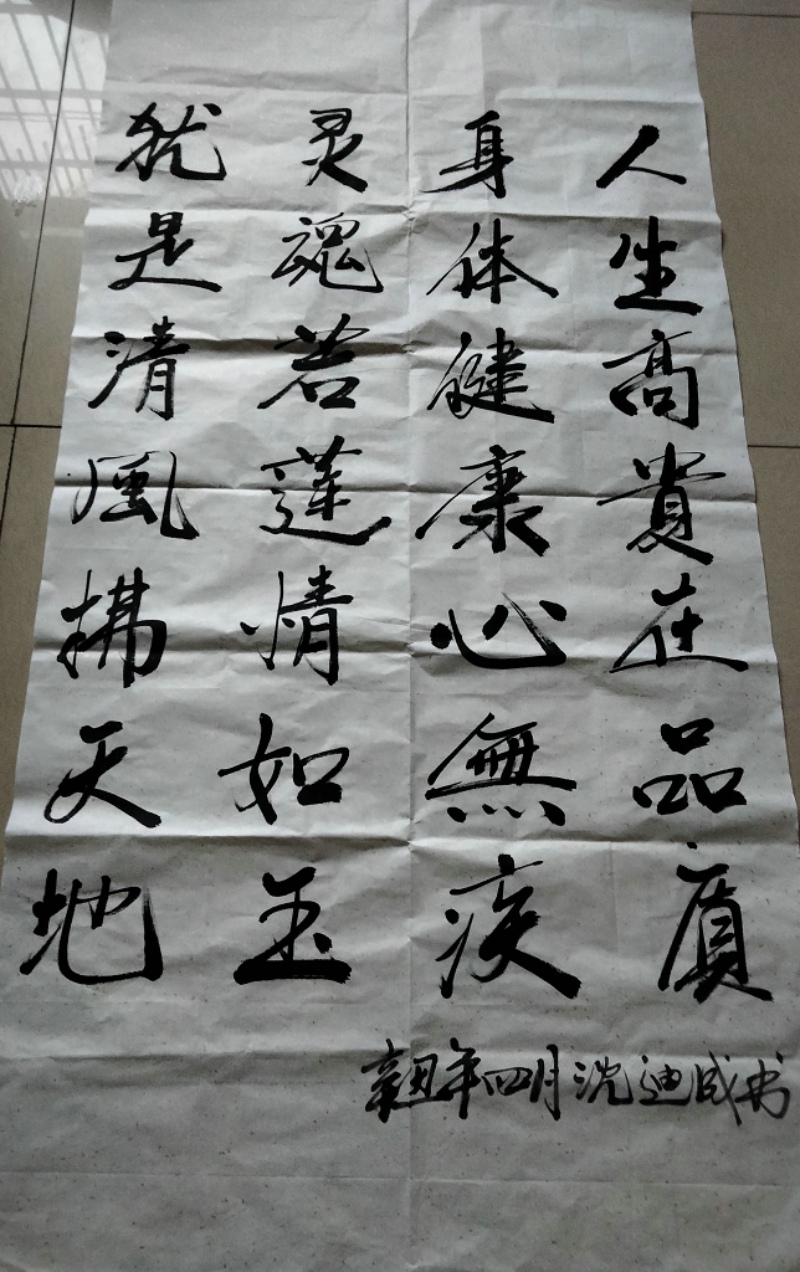 人生高貴在品质
身体健康心無疾
灵魂若蓮情如玉
犹是清風拂天地
辛丑年四月沈迪成书